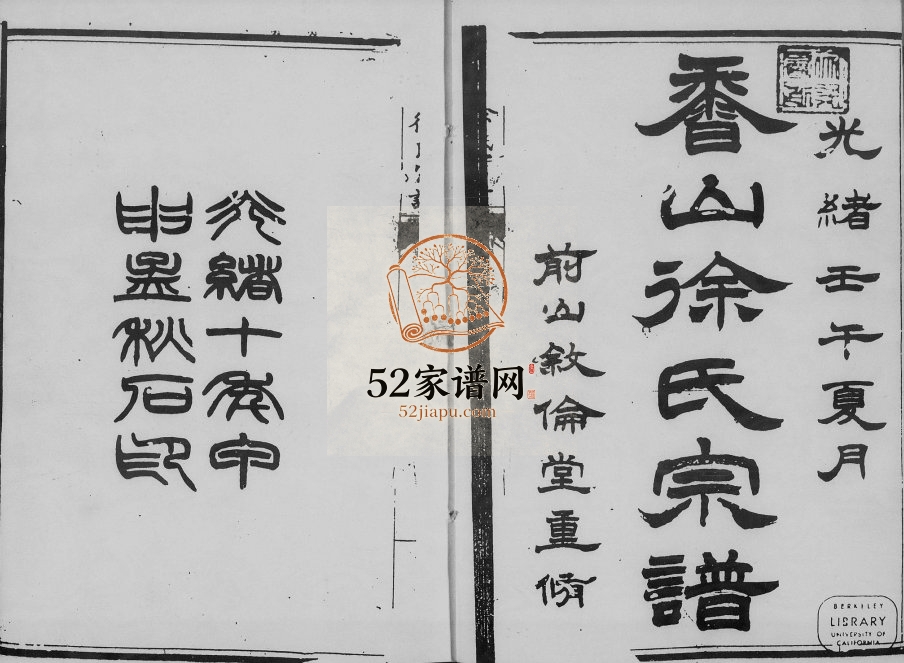 光緒壬午夏月
香山徐氏宗譜
前山敘倫堂重修
光緒十年甲
申孟秋石印
52家谱网
52jiapu.com
BERKELEY
LIBRARY
UNIVERSITY OF
CALIFORNIA